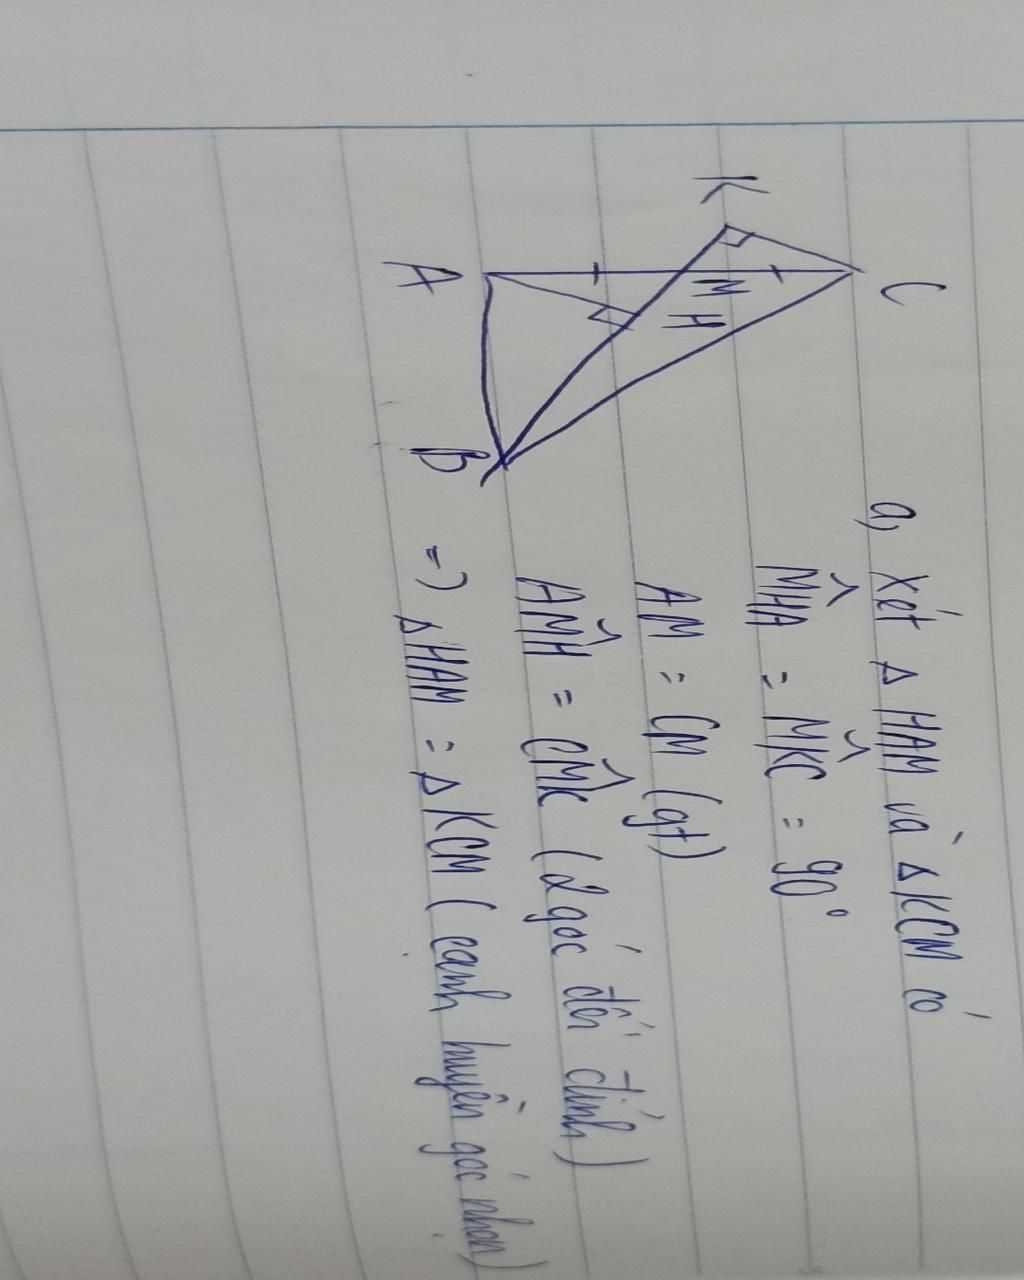 K
C
M
H
A
B
a, Xét Δ HAM và Δ KCM có
MĤA = MK̂C = 90°
AM = CM (gt)
AM̂H = CM̂K (2 góc đối đỉnh)
=> ΔHAM = ΔKCM (cạnh huyền góc nhọn)